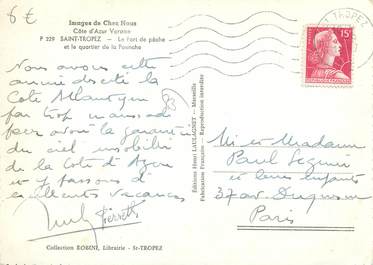 6 €
Images de Chez Nous
Côte d'Azur Varoise
P 229 SAINT-TROPEZ — Le Port de pêche
et le quartier de la Ponche
ST TROPEZ
15F
Nous avons cette
année déserté la
Côte
83
par trop maussade
pour avoir la garantie
du ciel immobile
de la Côte d'Azur
et y passons d'
excellentes vacances
Pierrette
Editions Henri LAULAGNET - Marseille
Fabrication Française - Reproduction interdite
Mr et Madame
Paul Seguin
et leurs enfants
37 av. Duquesne
Paris
Collection ROBINI, Librairie - St-TROPEZ